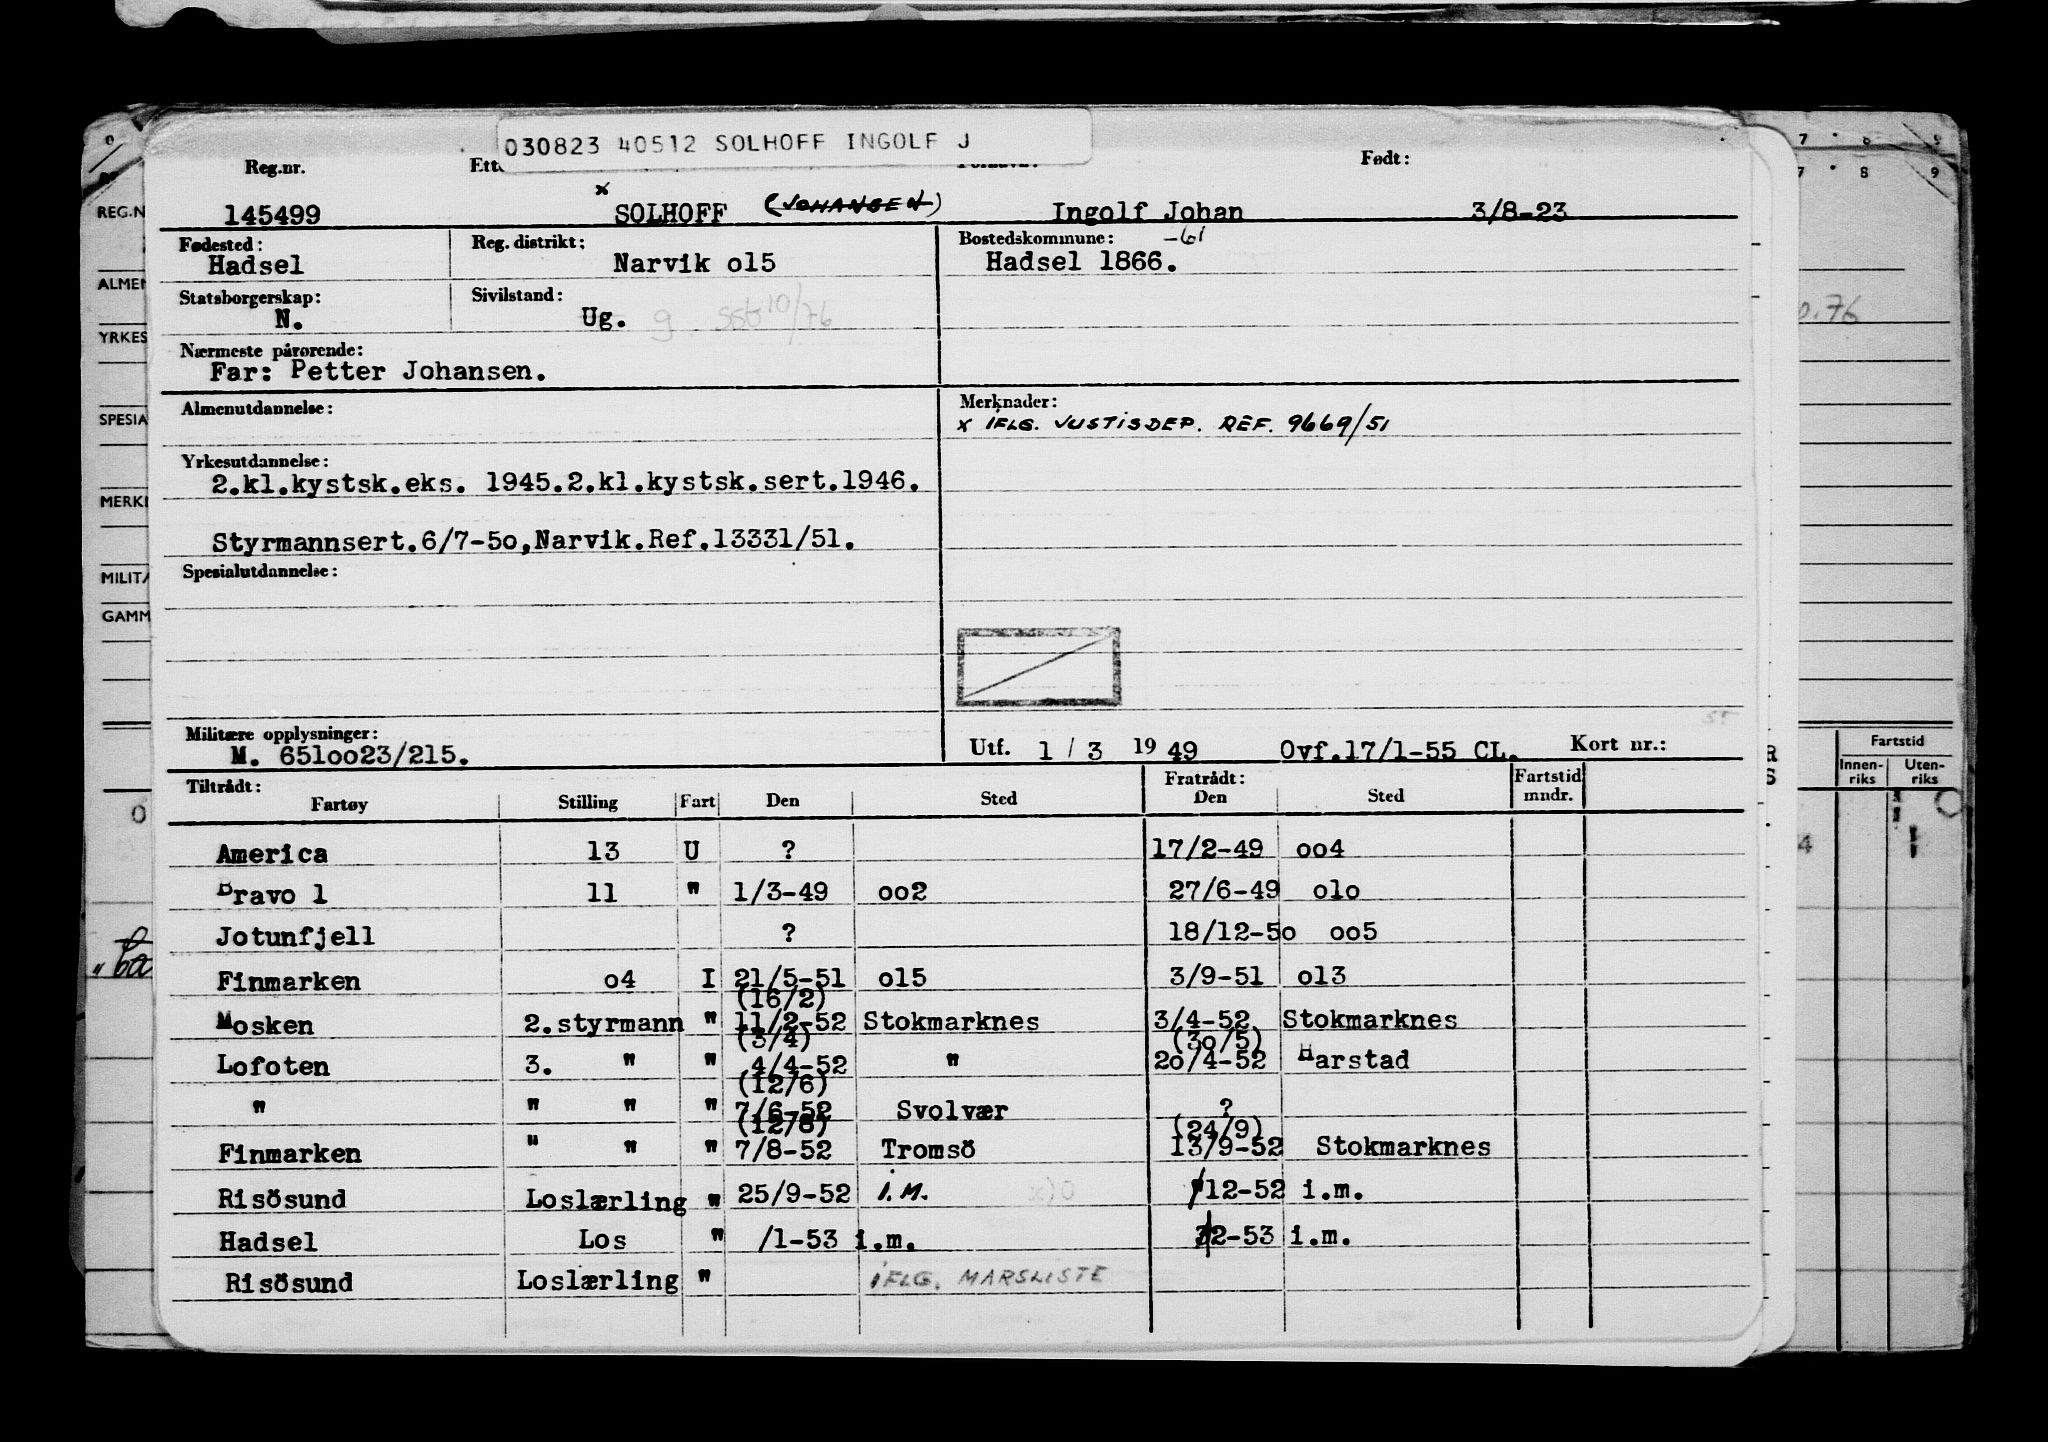 030823 40512 SOLHOFF INGOLF J
Reg.nr. Født:
145499 x SOLHOFF (JOHANSEN) Ingolf Johan 3/8-23
Fødested: Reg. distrikt: Bostedskommune: -61
Hadsel Narvik o15 Hadsel 1866.
Statsborgerskap: Sivilstand:
N. Ug. g sst 10/76
Nærmeste pårørende:
Far: Petter Johansen.
Almenutdannelse: Merknader:
x IFLG. JUSTISDEP. REF. 9669/51
Yrkesutdannelse:
2.kl.kystsk.eks. 1945.2.kl.kystsk.sert.1946.
Styrmannsert.6/7-5o,Narvik.Ref.13331/51.
Spesialutdannelse:
Militære opplysninger:
M. 651oo23/215. Utf. 1 / 3 19 49 Ovf.17/1-55 CL. Kort nr.:
Tiltrådt: Fratrådt: Fartstid
Fartøy Stilling Fart Den Sted Den Sted mndr.
America 13 U ? 17/2-49 oo4
Bravo 1 11 " 1/3-49 oo2 27/6-49 o1o
Jotunfjell ? 18/12-5o oo5
Finmarken o4 I 21/5-51 o15 3/9-51 o13
(16/2)
Mosken 2.styrmann " 11/2-52 Stokmarknes 3/4-52 Stokmarknes
(3/4) (3o/5)
Lofoten 3. " " 4/4-52 " 2o/4-52 Harstad
(12/6)
" " " " 7/6-52 Svolvær ?
(12/8) (24/9)
Finmarken " " " 7/8-52 Tromsö 13/9-52 Stokmarknes
Risösund Loslærling " 25/9-52 I.M. /12-52 i.m.
Hadsel Los " /1-53 i.m. 2-53 i.m.
Risösund Loslærling " IFLG. MARSLISTE
REG.N
ALMEN
YRKES
SPESIA
MERK
MILITÆ
GAMM
7 8 9
7 8 9
Fartstid
Innen-riks Uten-riks